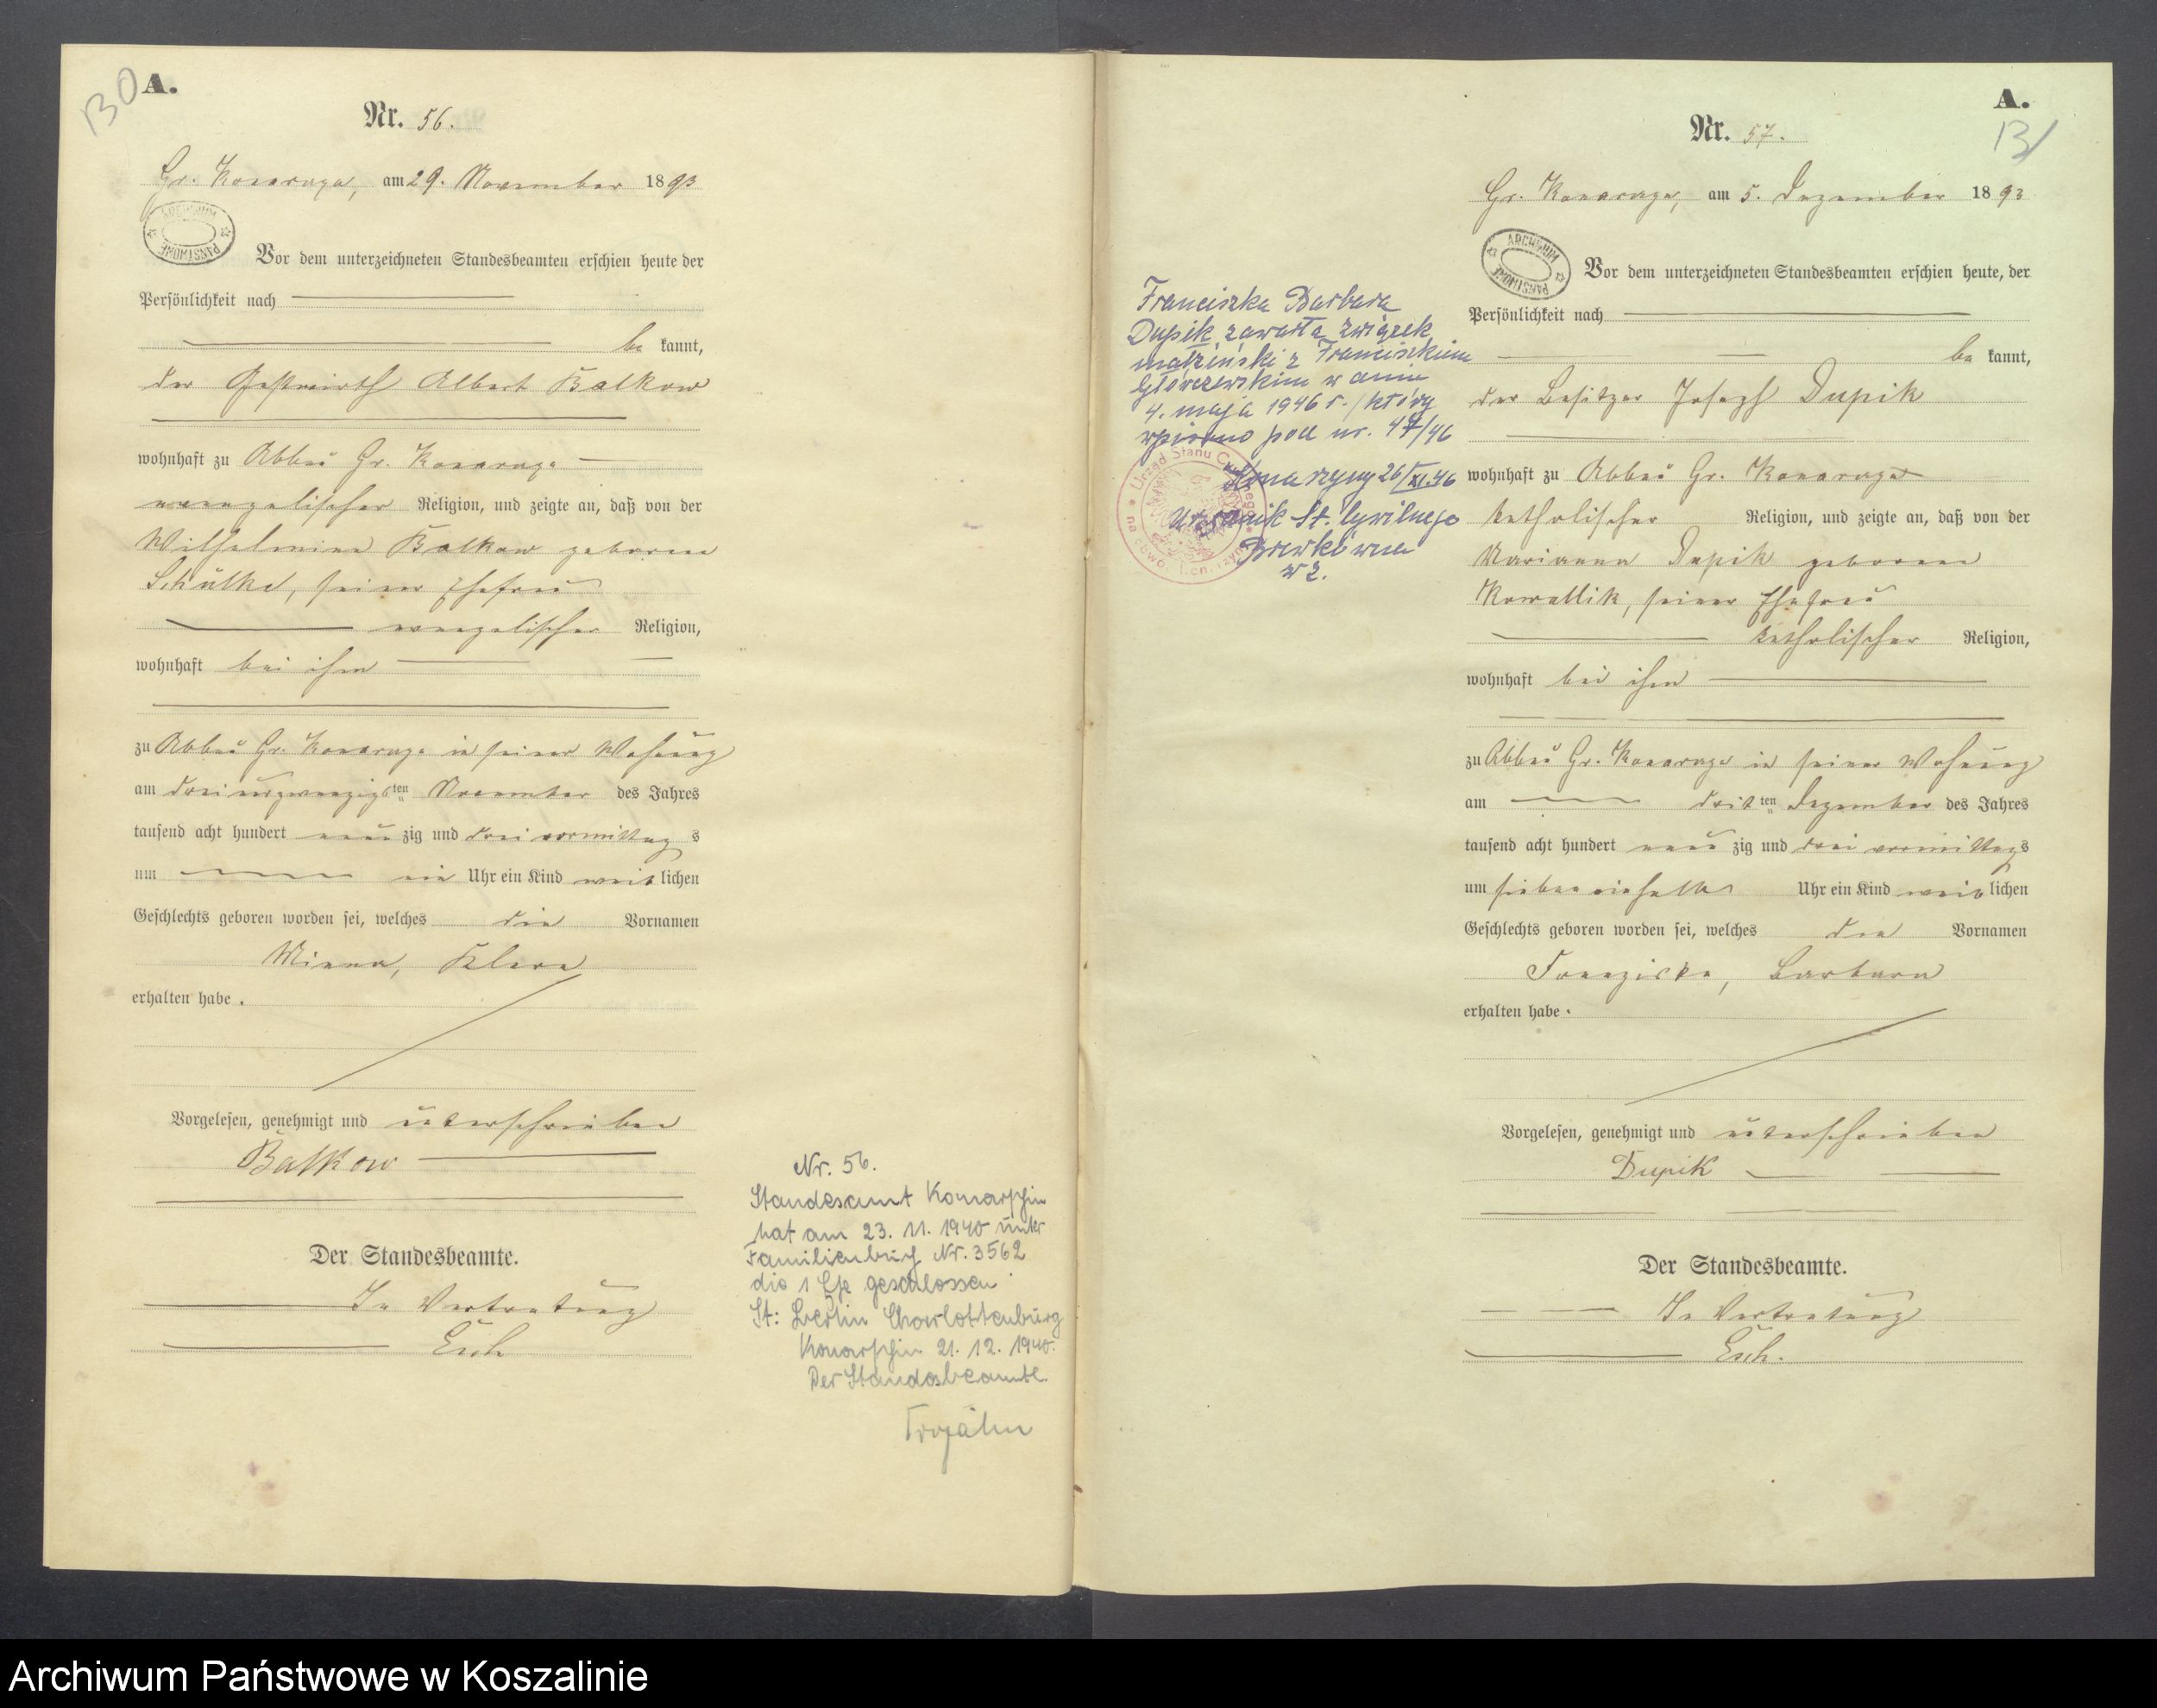 130
A.
Nr. 56.
Gr. Konarczyn, am 29. November 1893
ARCHIWUM PAŃSTWOWE
Vor dem unterzeichneten Standesbeamten erschien heute der
Persönlichkeit nach
be kannt,
der Gastwirth Albert Balkow
wohnhaft zu Abbau Gr. Konarczyn
evangelischer Religion, und zeigte an, daß von der
Wilhelmine Balkow geborene
Schülke, seiner Ehefrau
evangelischer Religion,
wohnhaft bei ihm
zu Abbau Gr. Konarczyn in seiner Wohnung
am dreiundzwanzigsten November des Jahres
tausend acht hundert neunzig und drei vormittags
um ein Uhr ein Kind weiblichen
Geschlechts geboren worden sei, welches die Vornamen
Minna, Klara
erhalten habe.
Vorgelesen, genehmigt und unterschrieben
Balkow
Der Standesbeamte.
In Vertretung
Esch
Nr. 56.
Standesamt Konarschin
hat am 23. 11. 1940 unter
Familienbuch Nr. 3562
die 1 Ehe geschlossen
St: Berlin Charlottenburg
Konarschin 21. 12. 1940.
Der Standesbeamte.
A.
131
Nr. 57.
Gr. Konarczyn, am 5. Dezember 1893
ARCHIWUM PAŃSTWOWE
Vor dem unterzeichneten Standesbeamten erschien heute, der
Persönlichkeit nach
be kannt,
der Besitzer Joseph Dupik
wohnhaft zu Abbau Gr. Konarczyn
katholischer Religion, und zeigte an, daß von der
Marianna Dupik geborene
Kowallik, seiner Ehefrau
katholischer Religion,
wohnhaft bei ihm
zu Abbau Gr. Konarczyn in seiner Wohnung
am dritten Dezember des Jahres
tausend acht hundert neunzig und drei vormittags
um sieben einhalb Uhr ein Kind weiblichen
Geschlechts geboren worden sei, welches die Vornamen
Franziska, Barbara
erhalten habe.
Vorgelesen, genehmigt und unterschrieben
Dupik
Der Standesbeamte.
In Vertretung
Esch.
Franciszka Barbara
Dupik zawarła związek
małżeński z Franciszkiem
Główczewskim w dniu
4. maja 1946 r. / który
wpisano pod nr. 47/46
Konarzyny 26/XI.46
Urzędnik St. Cywilnego
w z.
Urząd Stanu Cywilnego
Archiwum Państwowe w Koszalinie